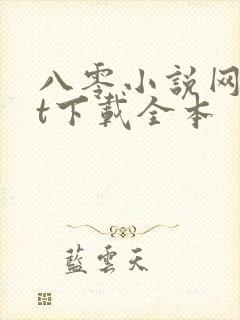 八零小説网
t下載全本
藍雲天